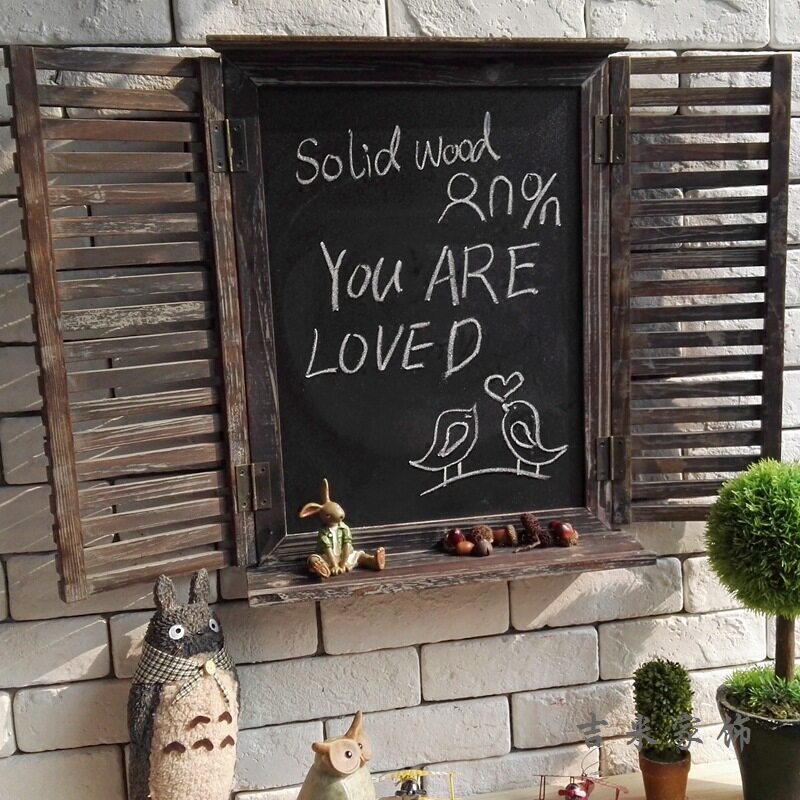 Solid wood
80%
You ARE
LOVED
吉米家饰